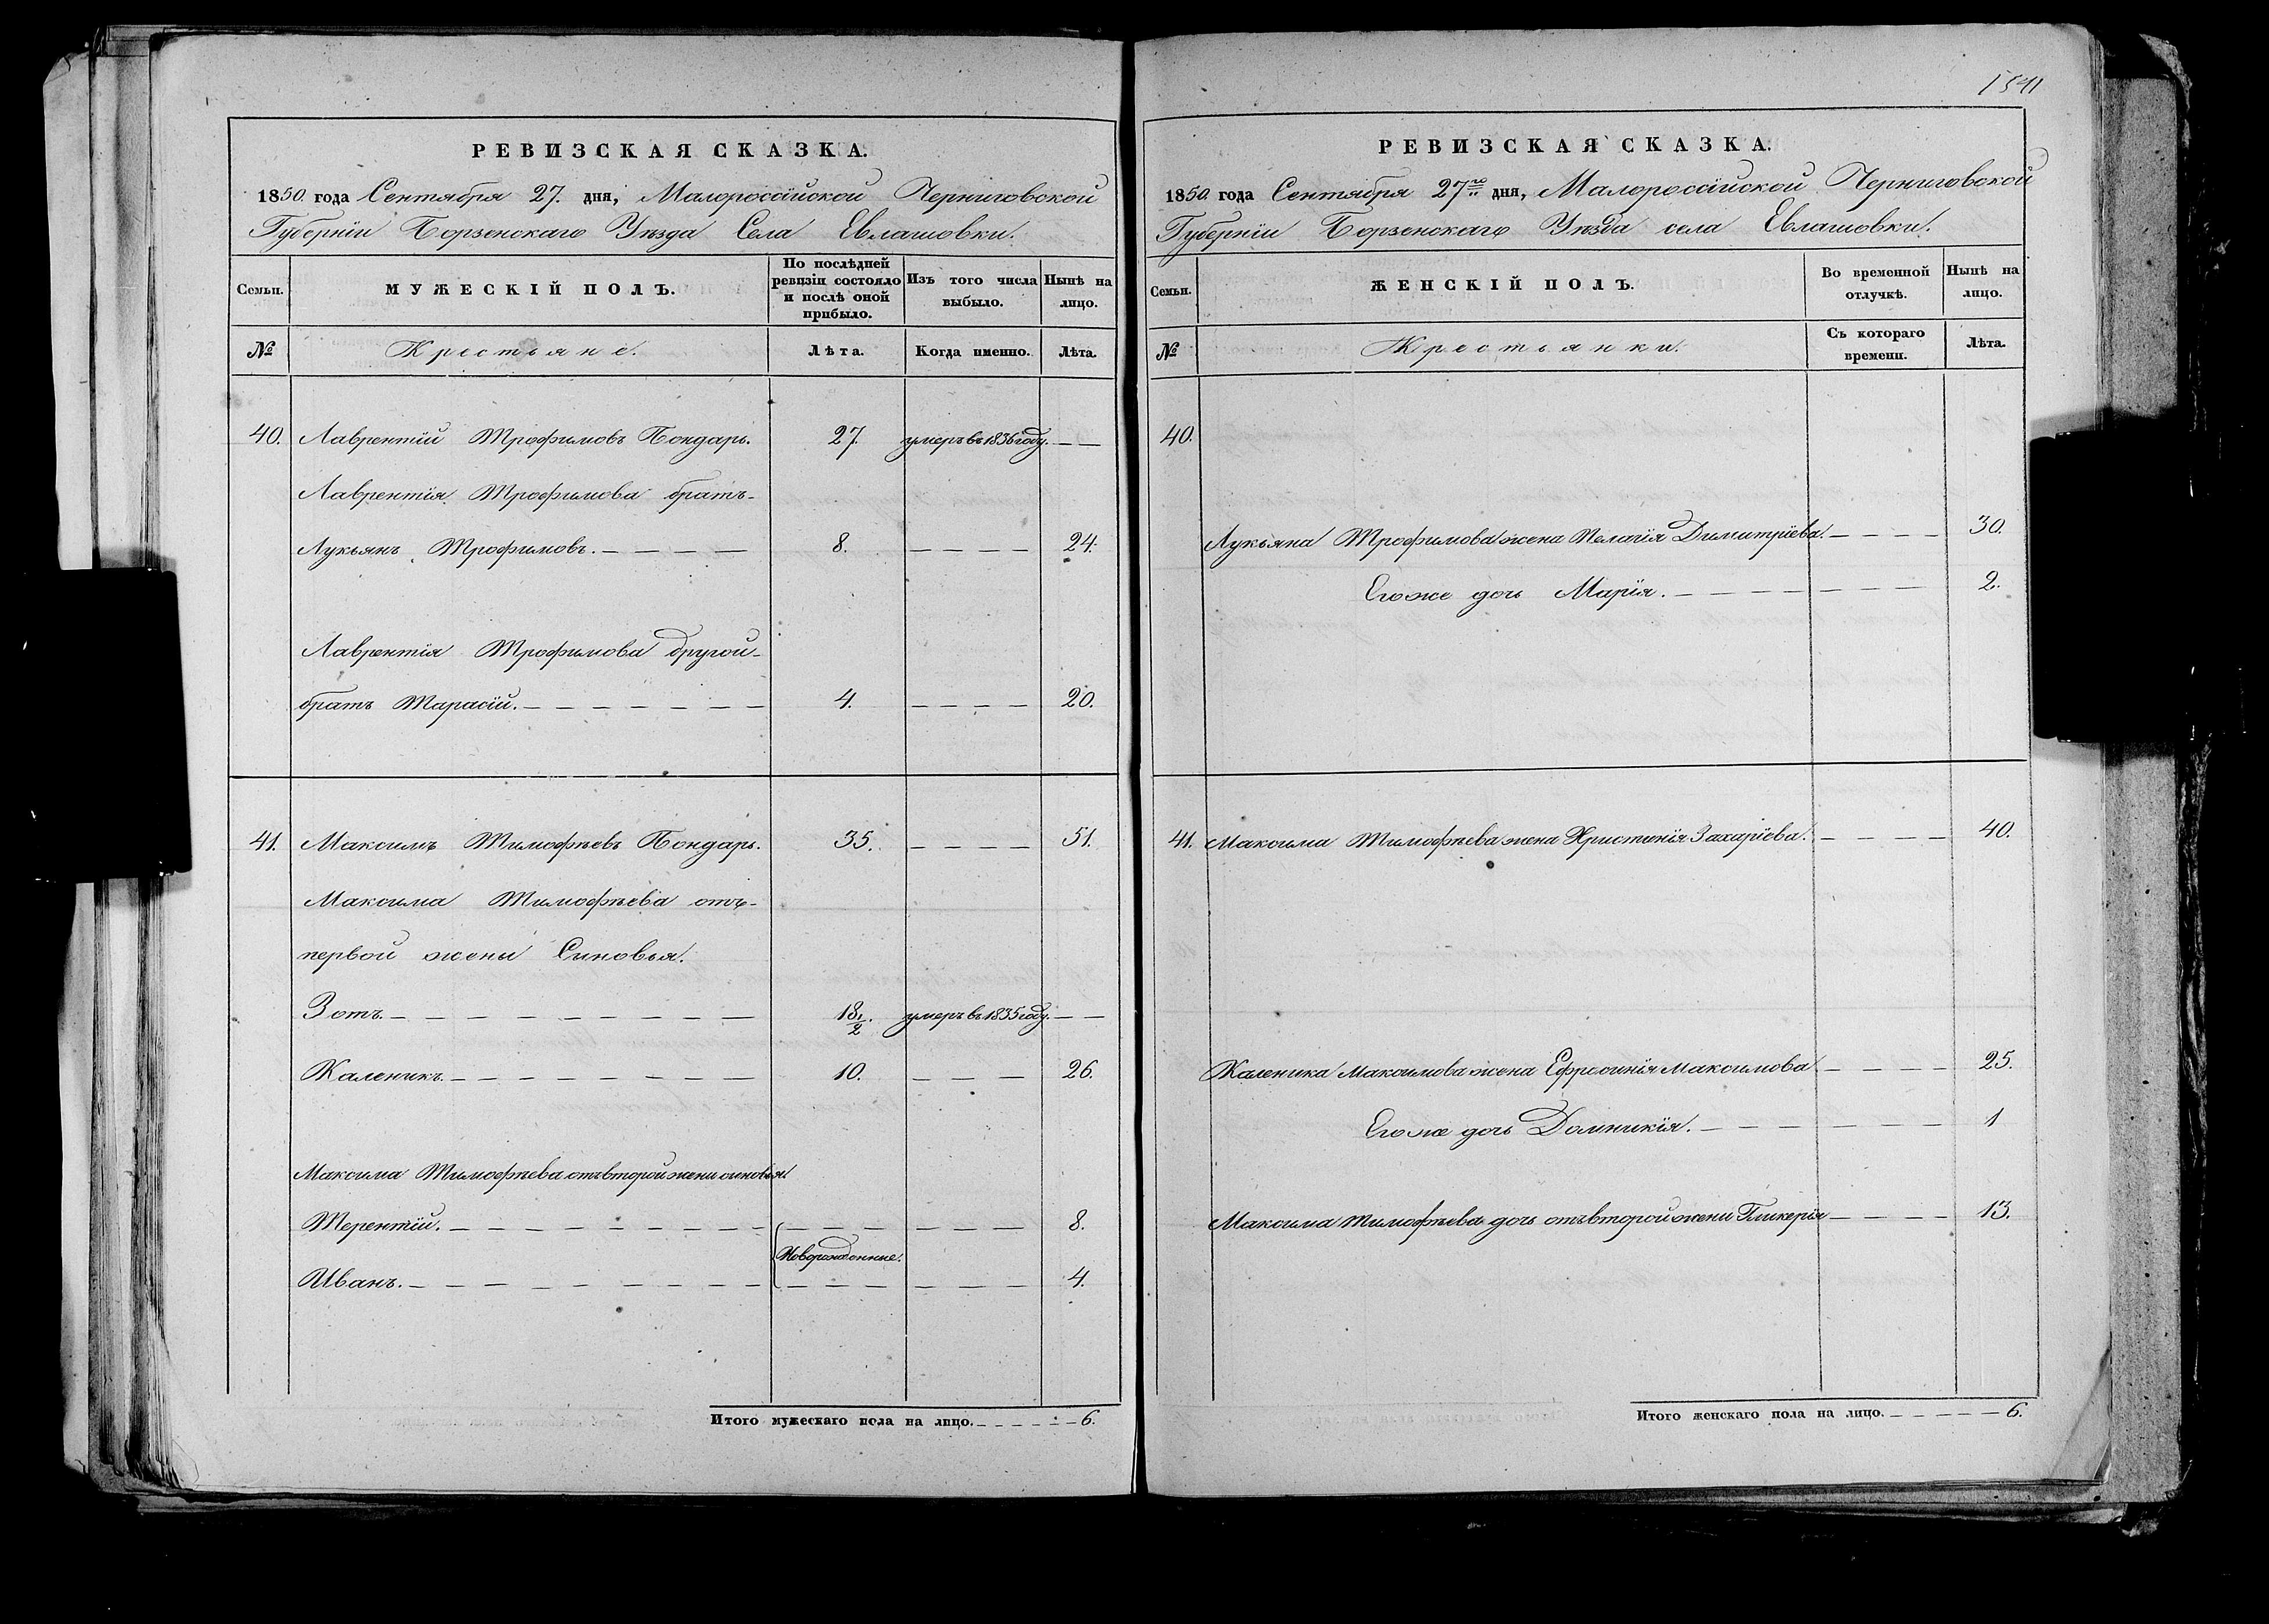 РЕВИЗСКАЯ СКАЗКА.
1850. года Сентября 27. дня, Малоросійской Черниговской
Губерніи Борзенскаго Уѣзда Села Евлашовки.
Семьи.
МУЖЕСКІЙ ПОЛЪ.
По послѣдней
ревизіи состояло
и послѣ оной
прибыло.
Изъ того числа
выбыло.
Нынѣ на
лицо.
№
Крестьяне.
Лѣта.
Когда именно.
Лѣта.
40. Лаврентій Трофимовъ Бондарь. 27. умеръ въ 1836 году. — —
Лаврентія Трофимова братъ-
Лукьянъ Трофимовъ. — — — — 8. — — — — 24.
Лаврентія Трофимова другой-
братъ Тарасій. — — — — — — — 4. — — — — 20.
41. Максимъ Тимофѣевъ Бондарь. 35. — — — — 51.
Максима Тимофѣева отъ-
первой жены Сыновья.
Зотъ. — — — — — — — — — 18 1/2. умеръ въ 1835 году. — —
Каленикъ. — — — — — — — — 10. — — — 26.
Максима Тимофѣева отъ второй жены сыновья.
Терентій. — — — — — — — — — — — — — — — — 8.
Новорожденные.
Иванъ. — — — — — — — — — — — — — — — — 4.
Итого мужескаго пола на лицо. — — — — — — 6.
РЕВИЗСКАЯ СКАЗКА.
1850. года Сентября 27го дня, Малоросійской Черниговской
Губерніи Борзенскаго Уѣзда села Евлашовки.
Семьи.
ЖЕНСКІЙ ПОЛЪ.
Во временной
отлучкѣ.
Нынѣ на
лицо.
№
Крестьянки.
Съ котораго
времени.
Лѣта.
40.
Лукьяна Трофимова жена Пелагія Димитріева. — — — — 30.
Его же дочь Марія. — — — — — — — — 2.
41. Максима Тимофѣева жена Христинія Захаріева. — — — — 40.
Каленика Максимова жена Ефросинія Максимова — — — — 25.
Его же дочь Домникія. — — — — — — — 1
Максима Тимофѣева дочь отъ второй жены Гликерія — — — — 13.
Итого женскаго пола на лицо. — — — — — 6.